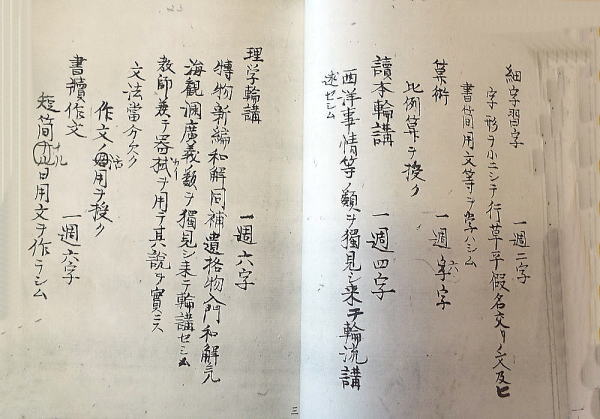 細字習字　一週二字
字形ヲ小ニシテ行草平假名交リノ文及ヒ
書簡用文等ヲ学ハシム
算術　一週六字
比例算ヲ授ク
讀本輪講　一週四字
西洋事情等ノ類ヲ獨見シ来テ輪流講
述セシム
理学輪講　一週六字
博物新編和解同補遺格物入門和解氣
海觀瀾廣義ノ類ヲ獨見シ来テ輪講セシム
教師兼テ器械ヲ用テ其説ヲ實ニス
文法當分欠ク
作文ノ活用ヲ授ク
書牘作文　一週六字
短簡ナル日用文ヲ作ラシム
三